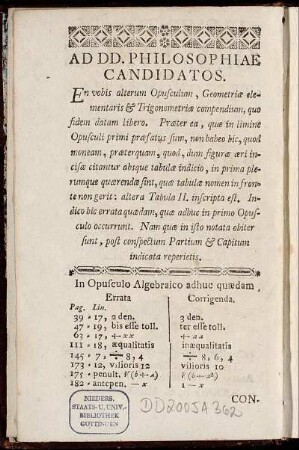 AD DD. PHILOSOPHIAE
CANDIDATOS.
En vobis alterum Opusculum, Geometriæ ele-
mentaris & Trigonometriæ compendium, quo
fidem datam libero. Præter ea, quæ in limine
Opusculi primi præfatus sum, non habeo hic, quod
moneam, præterquam, quod, dum figuræ æri in-
cisæ citantur absque tabulæ indicio, in prima ple-
rumque quærendæ sint, quæ tabulæ nomen in fron-
te non gerit: altera Tabula II. inscripta est. In-
dico hic errata quædam, quæ adhuc in primo Opus-
culo occurrunt. Nam quæ in isto notata obiter
sunt, post conspectum Partium & Capitum
indicata reperietis.
In Opusculo Algebraico adhuc quædam
Errata Corrigenda.
Pag. Lin.
39 - 17, 2 den. 3 den.
47 - 19, bis esse toll. ter esse toll.
63 - 17, ÷ xx ÷ aa
111 - 18, æqualitatis inæqualitatis
145 - 7, ÷ 8, 4 ÷ 8, 6, 4
173 - 12, vilioris 12 vilioris 10
175 - penult. √(b÷x) √(b-x²)
182 - antepen. — x 1 — x
CON-
NIEDERS.
STAATS-U. UNIV.-
BIBLIOTHEK
GÖTTINGEN
DD2005A362